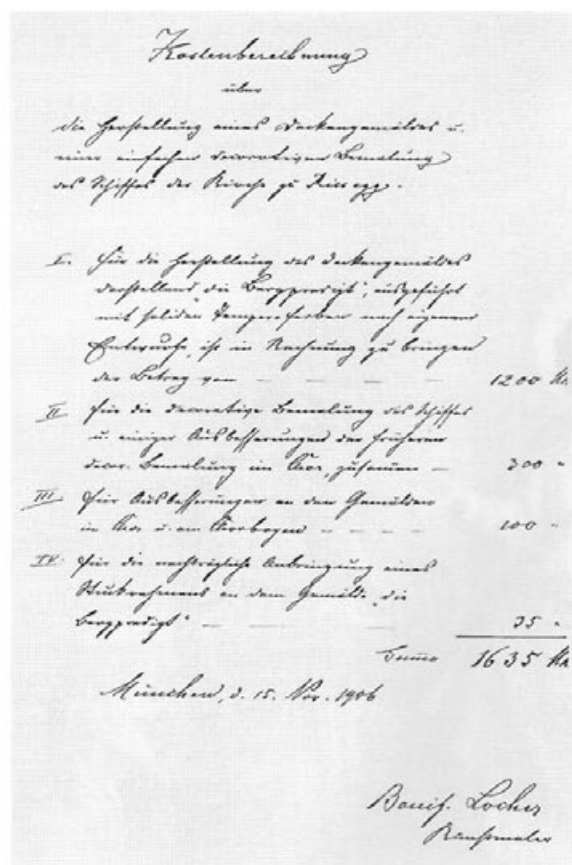 Kostenberechnung
über
die Herstellung eines Deckengemäldes u.
einer einfachen decorativen Bemalung
des Schiffes der Kirche zu
I. Für die Herstellung des Deckengemäldes
darstellend die Bergpredigt", ausgeführt
mit soliden Temperafarben nach eigenem
Entwurfe, ist in Rechnung zu bringen
der Betrag von – – – – 1200 Mk.
II. Für die decorative Bemalung des Schiffes
u. einiger Ausbesserungen der früheren
decor. Bemalung im Chor, zusammen – 300 "
III. Für Ausbesserungen an den Gemälden
im Chor u. am Chorbogen – – – – 100 "
IV. Für die nachträgliche Anbringung eines
Stuckrahmens an dem Gemälde „die
Bergpredigt" – – 35 "
Summa 1635 Mk
München, d. 15. Nov. 1906
Bonif. Locher
Kunstmaler